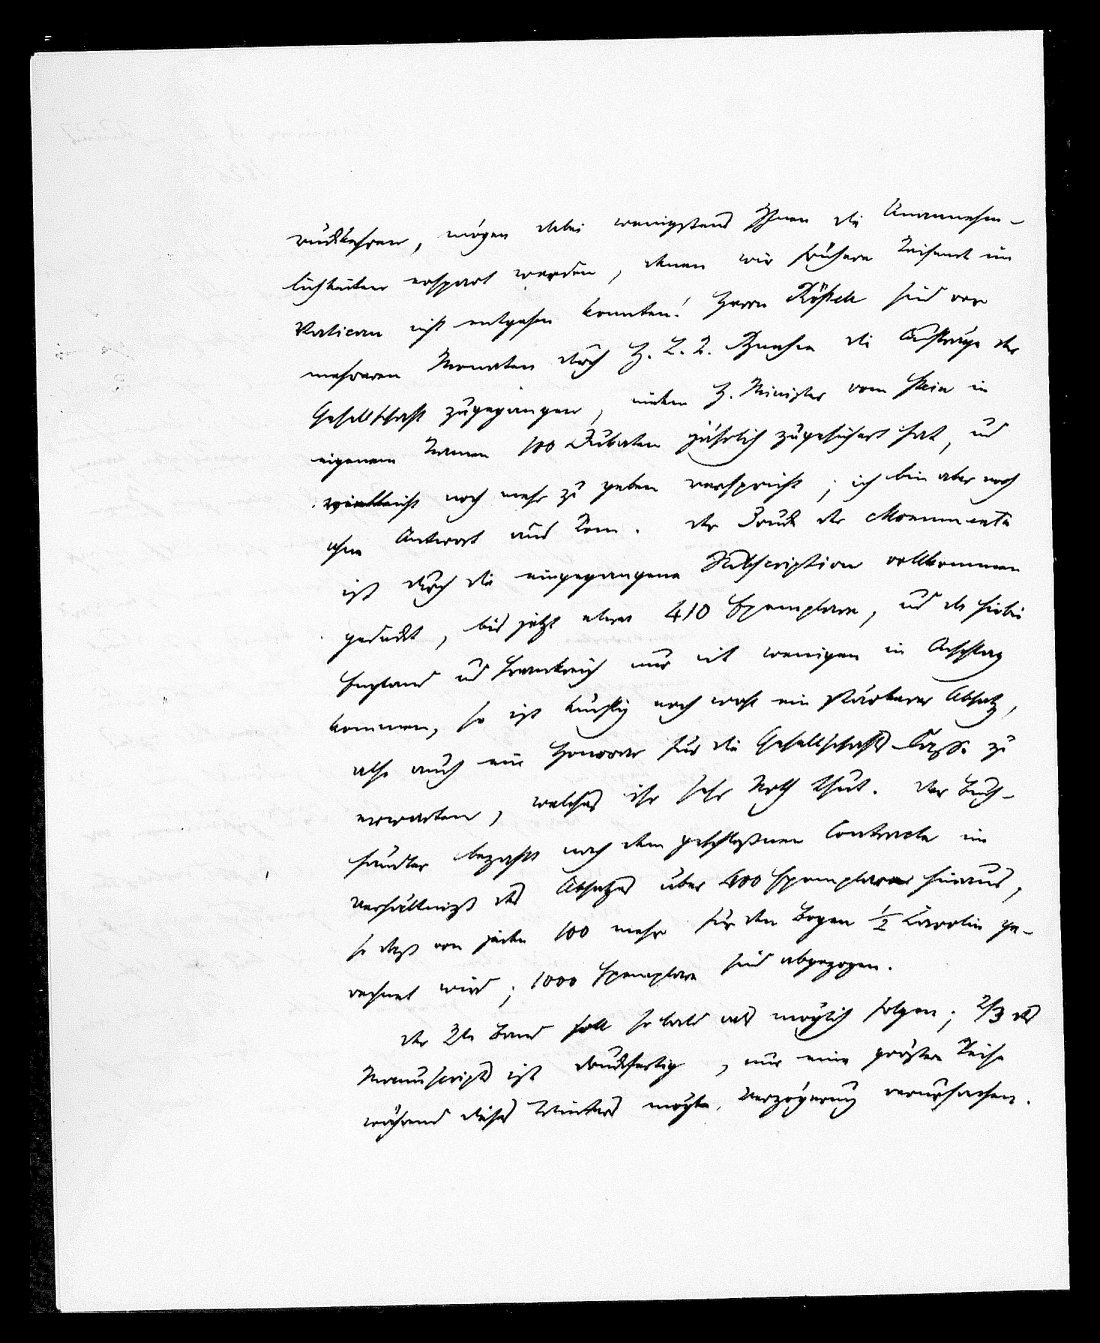 rückkehren, mögen dabei wenigstens Ihnen die Unannehm-
lichkeiten erspart werden, denen wir frühere Reisende im
Vatican nicht entgehen konnten! Herrn Röstell sind vor
mehreren Monaten durch H. L. R. Bunsen die Aufträge der
Gesellschaft zugegangen, indem H. Minister vom Stein in
eigenem Namen 100 Dukaten jährlich zugesichert hat, und
vielleicht noch mehr zu geben verspricht; ich bin aber noch
ohne Antwort aus Rom. Der Druck der Monumenta
ist durch die eingegangene Subscription vollkommen
gedeckt, bis jetzt etwa 410 Exemplare, und da hiebei
England und Frankreich nur mit wenigen in Anschlag
kommen, so ist künftig noch wohl ein stärkerer Absatz,
also auch ein Honorar für die Gesellschafts-Casse zu
erwarten, welches ihr sehr Noth thut. Der Buch-
händler bezahlt nach dem geschloßnen Contracte im
Verhältniß des Absatzes über 400 Exemplare hinaus,
so daß von jeden 100 mehr für den Bogen 1/2 Carolin ge-
rechnet wird; 1000 Exemplare sind abgezogen.
Der 2te Band soll sobald als möglich folgen; 2/3 des
Manuscripts ist druckfertig, nur eine größere Reise
während dieses Winters möchte Verzögerung verursachen.